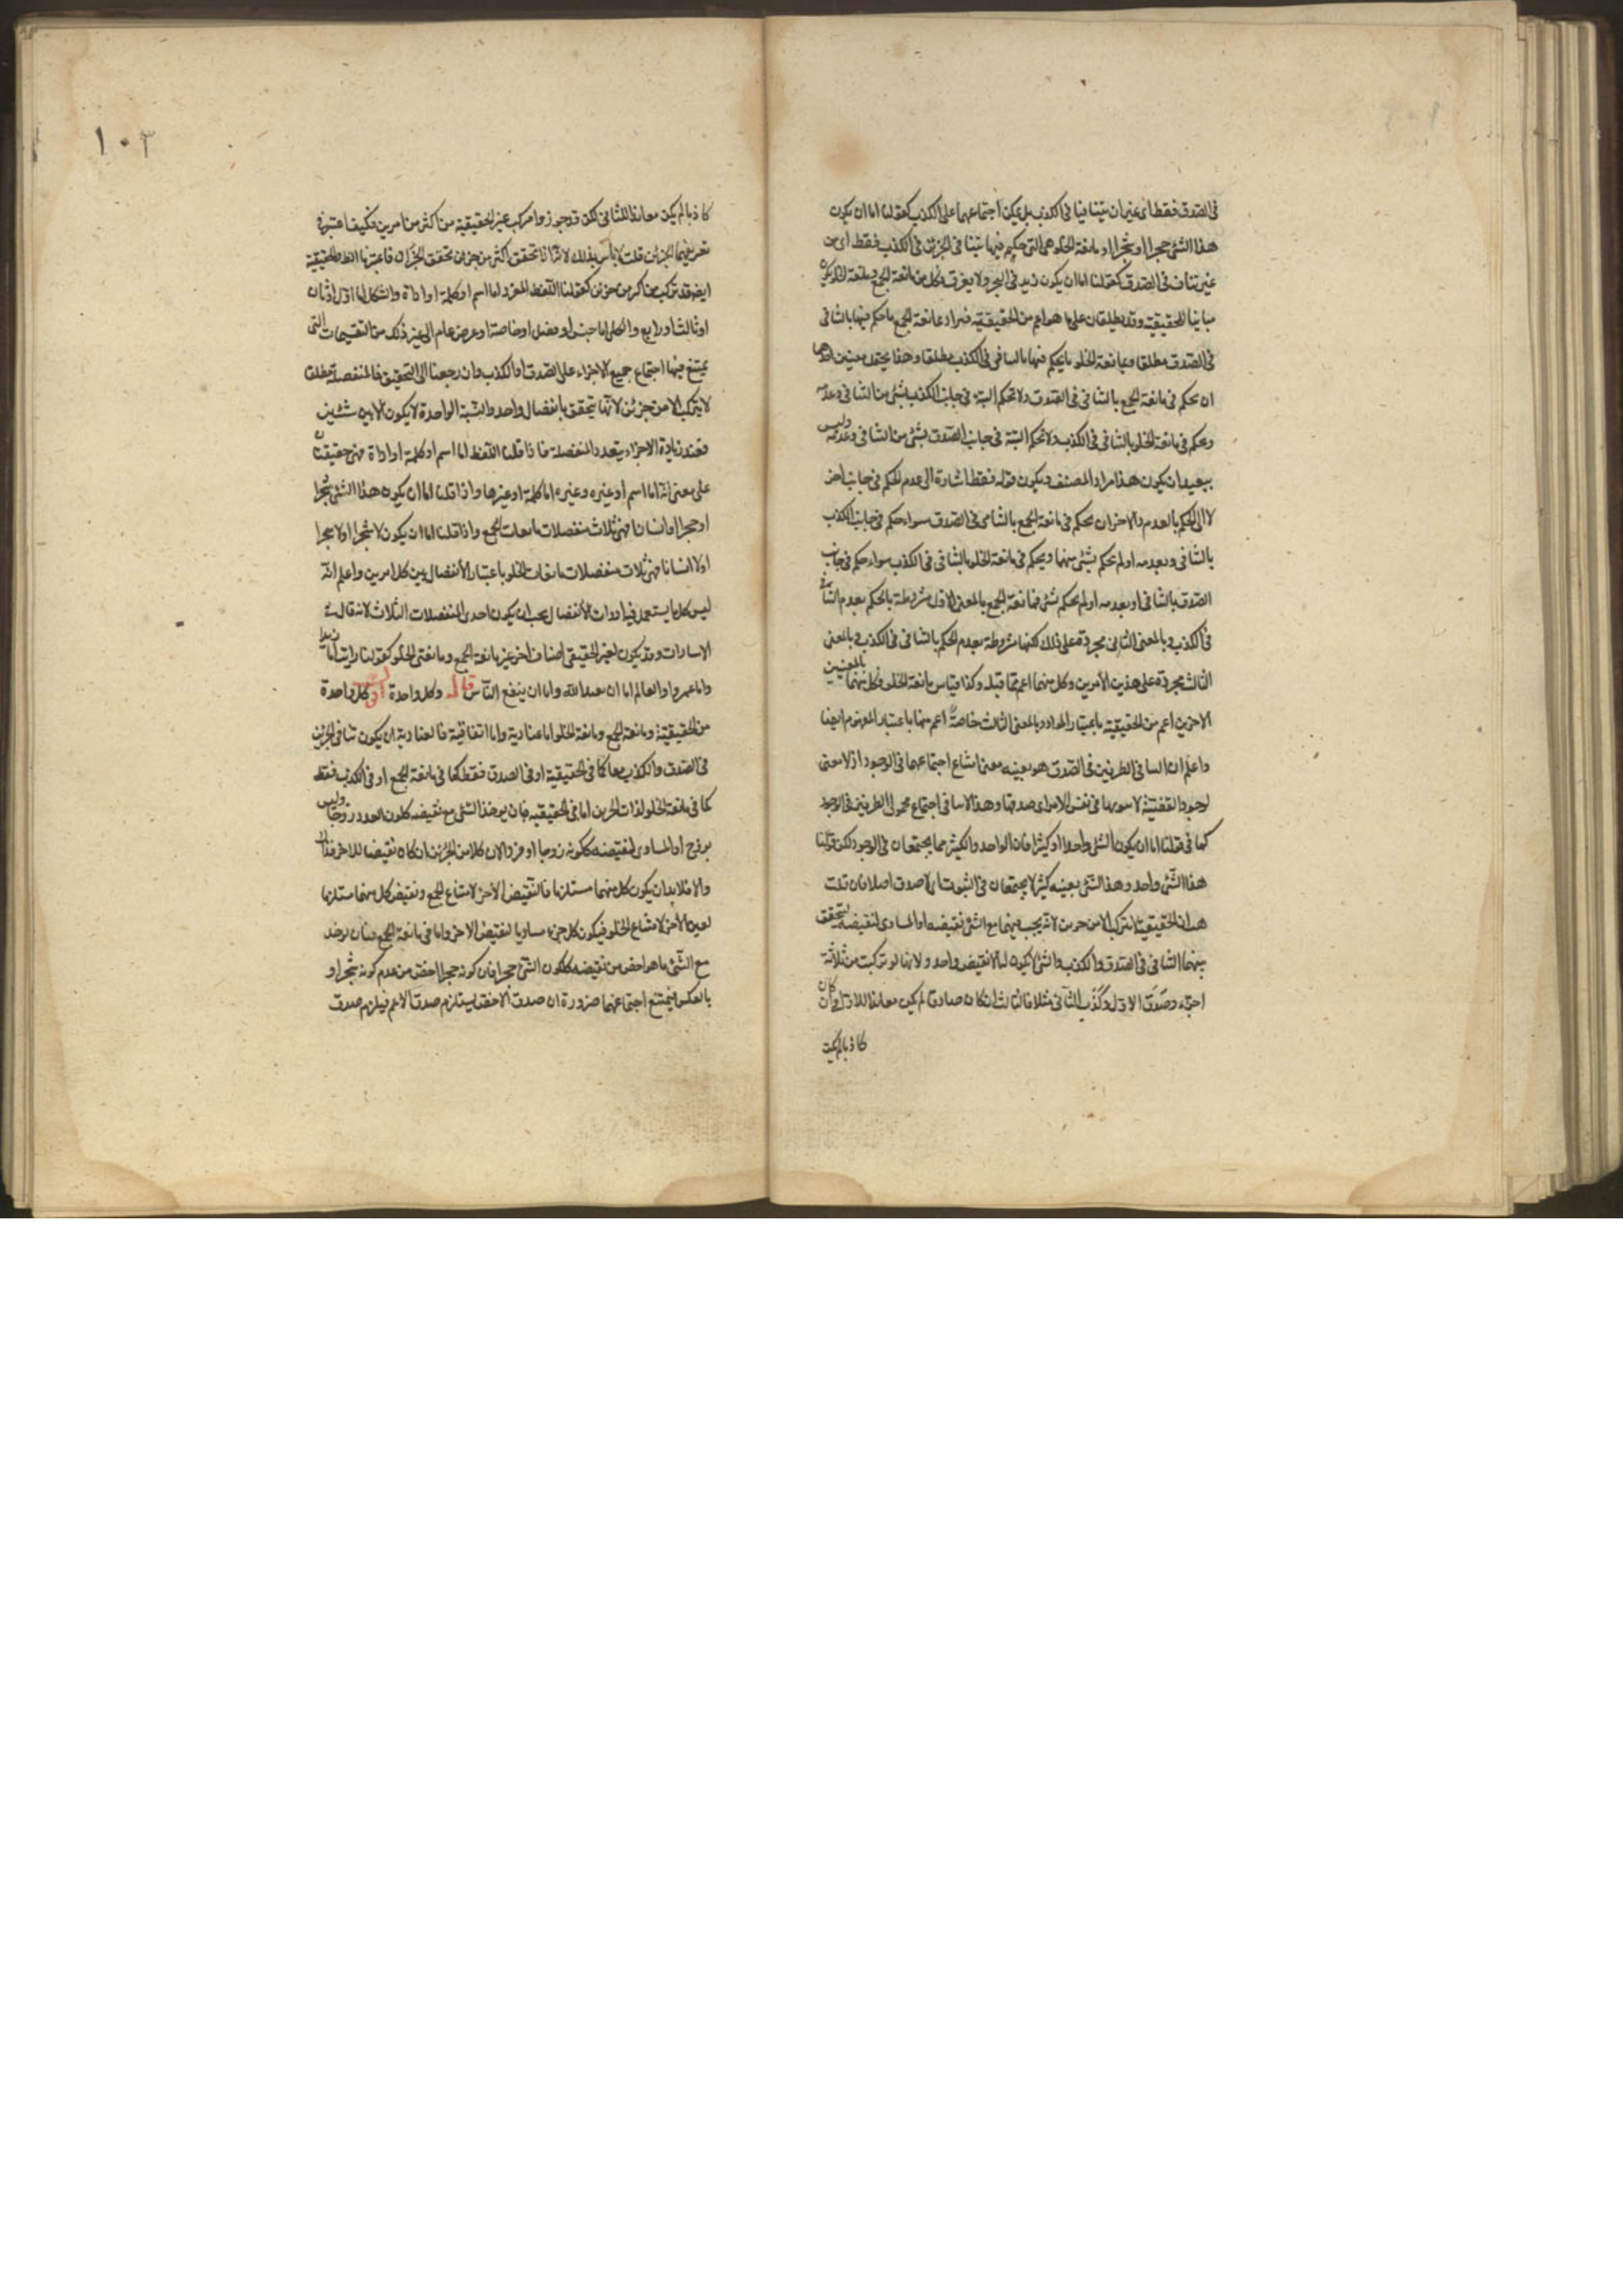 فى الصدق فقط اى غير ان يتنافيا فى الكذب بل يمكن اجتماعهما على الكذب كقولنا اما ان يكون
هذا الشئ حجرا او شجرا او مانعة الخلو هى التى حكم فيها بتنافى الجزئين فى الكذب فقط اى من
غير تناف فى الصدق كقولنا اما ان يكون زيد فى البحر ولا يغرق وكل من مانعة الجمع ومانعة الخلو يكون
مباينا للحقيقية وقد يطلقان على ما هو اعم من الحقيقية فيراد بمانعة الجمع ما حكم فيها بالتنافى
فى الصدق مطلقا وبمانعة الخلو ما يحكم فيها بالتنافى فى الكذب مطلقا وهذا يحتمل معنيين احدهما
ان يحكم فى مانعة الجمع بالتنافى فى الصدق ولا تحكم البتة فى جانب الكذب بشئ من التنافى وعدمه
ويحكم فى مانعة الخلو بالتنافى فى الكذب ولا تحكم البتة فى جانب الصدق بشئ من التنافى وعدمه وليس
ببعيد ان يكون هذا مراد المصنف ويكون قوله فقط اشارة الى عدم الحكم فى جانب اخر
لا الى الحكم بالعدم والاخر ان يحكم فى مانعة الجمع بالتنافى فى الصدق سواء حكم فى جانب الكذب
بالتنافى وبعدمه او لم يحكم بشئ منهما ويحكم فى مانعة الخلو بالتنافى فى الكذب سواء حكم فى جانب
الصدق بالتنافى او بعدمه او لم يحكم بشئ فمانعة الجمع بالمعنى الاول مشروطة بالحكم بعدم التنافى
فى الكذب وبالمعنى الثانى مجردة على ذلك لكنها مشروطة بعدم الحكم بالتنافى فى الكذب وبالمعنى
الثالث مجردة على هذين الأمرين وكل منهما اعم مما قبله وكذا قياس مانعة الخلو فكل منهما بالمعنيين
الاخرين اعم من الحقيقية باعتبار المواد وبالمعنى الثالث خاصةً اعم منها باعتبار المفهوم ايضا
واعلم ان التنافى الطرفين فى الصدق هو بعينه معنى امتناع اجتماعهما فى الوجود اذ لا معنى
لوجود القضية لا سيما فى نفس الامر اى صدقها وهذا لا ينافى اجتماع محمول الطرفين فى الوجود
كما فى قولنا اما ان يكون الشئ واحدا او كثيرا فان الواحد والكثير مما يجتمعان فى الوجود لكن قولنا
هذا الشئ واحد وهذا الشئ بعينه كثير لا يجتمعان فى الثبوت اى لا صدق اصلا فان قلت
هذا الحقيقية لا تتركب الا من جزءين لانه يجب فيهما مع الشئ نقيضه او المساوى لنقيضه ليتحقق
بينهما التنافى فى الصدق والكذب والشئ لا يكون له الا نقيض واحد ولانها لو تركبت من ثلاثة
اجزاء وصدق الاول وكذب الثانى مثلا فالثالث ان كان صادقا لم يكن معاندا للاول وان كان
كاذبا لم يكن
١٠٣
كاذبا لم يكن معاندا للثانى لكن قد جوزوا تركب غير الحقيقية من اكثر من امرين فكيف اعتبر فى
تعريفهما الجزئين قلت لا بأس بذلك لانه اذا تحقق اكثر من جزءين تحقق الجزآن فاعتبرنا اللفظ الحقيقية
ايضا قد تتركب من اكثر من جزءين كقولنا اللفظ المفرد اما اسم او كلمة او اداة والشكل اما اول او ثان
او ثالث او رابع والكلى اما جنس او فصل او خاصة او عرض عام الى غير ذلك من التقسيمات التى
يمتنع فيها اجتماع جميع الاجزاء على الصدق او الكذب وان رجعنا الى التحقيق فالمنفصلة مطلقا
لا يتركب الا من جزئين لانها يتحقق بانفصال واحد والنسبة الواحدة لا يكون الا بين شيئين
فعند زيادة الاجزاء يتعدد المنفصلة فاذا قلنا اللفظ اما اسم او كلمة او اداة فهى حقيقيتان
على معنى انه اما اسم او غيره وغيره اما كلمة او غيرها واذا قلنا اما ان يكون هذا الشئ شجرا
او حجرا او انسانا فهى ثلاث منفصلات مانعات الجمع واذا قلنا اما ان يكون لا شجرا او لا حجرا
او لا انسانا فهى ثلاث منفصلات مانعات الخلو باعتبار الانفصال بين كل امرين واعلم انه
ليس كل ما يستعمل فيه ادوات الانفصال يجب ان يكون احدى المنفصلات الثلاث لانه قال فى
الاشارات وقد يكون لغير الحقيقى اصناف اخر غير مانعة الجمع ومانعتى الخلو كقولنا رايت اما زيدا
واما عمروا والعالم اما ان يعبد الله واما ان ينفع الناس قال وكل واحدة اقول كل واحدة
من الحقيقية ومانعة الجمع ومانعة الخلو اما عنادية واما اتفاقية فالعنادية ان يكون تنافى الجزئين
فى الصدق والكذب معا كما فى الحقيقية او فى الصدق فقط كما فى مانعة الجمع او فى الكذب فقط
كما فى مانعة الخلو لذات الجزئين اما فى الحقيقية فبان يوخذ الشئ مع نقيضه ككون العدد زوجا وليس
بزوج او المساوى لنقيضه ككونه زوجا او فردا لان كلا من الجزئين ان كان نقيضا للاخر فذاك
والا فلا بد ان يكون كل منهما مستلزما فالنقيض الآخر لامتناع الجمع ونقيض كل منهما مستلزما
لعين الآخر لامتناع الخلو فيكون كل جزء مساويا لنقيض الاخر واما فى مانعة الجمع فبان يوخذ
مع الشئ ما هو اخص من نقيضه ككون الشئ حجرا فان كونه حجرا اخص من عدم كونه شجرا و
بالعكس فيمتنع اجتماعهما ضرورة ان صدق الاخص يستلزم صدق الاعم فيلزم صدق